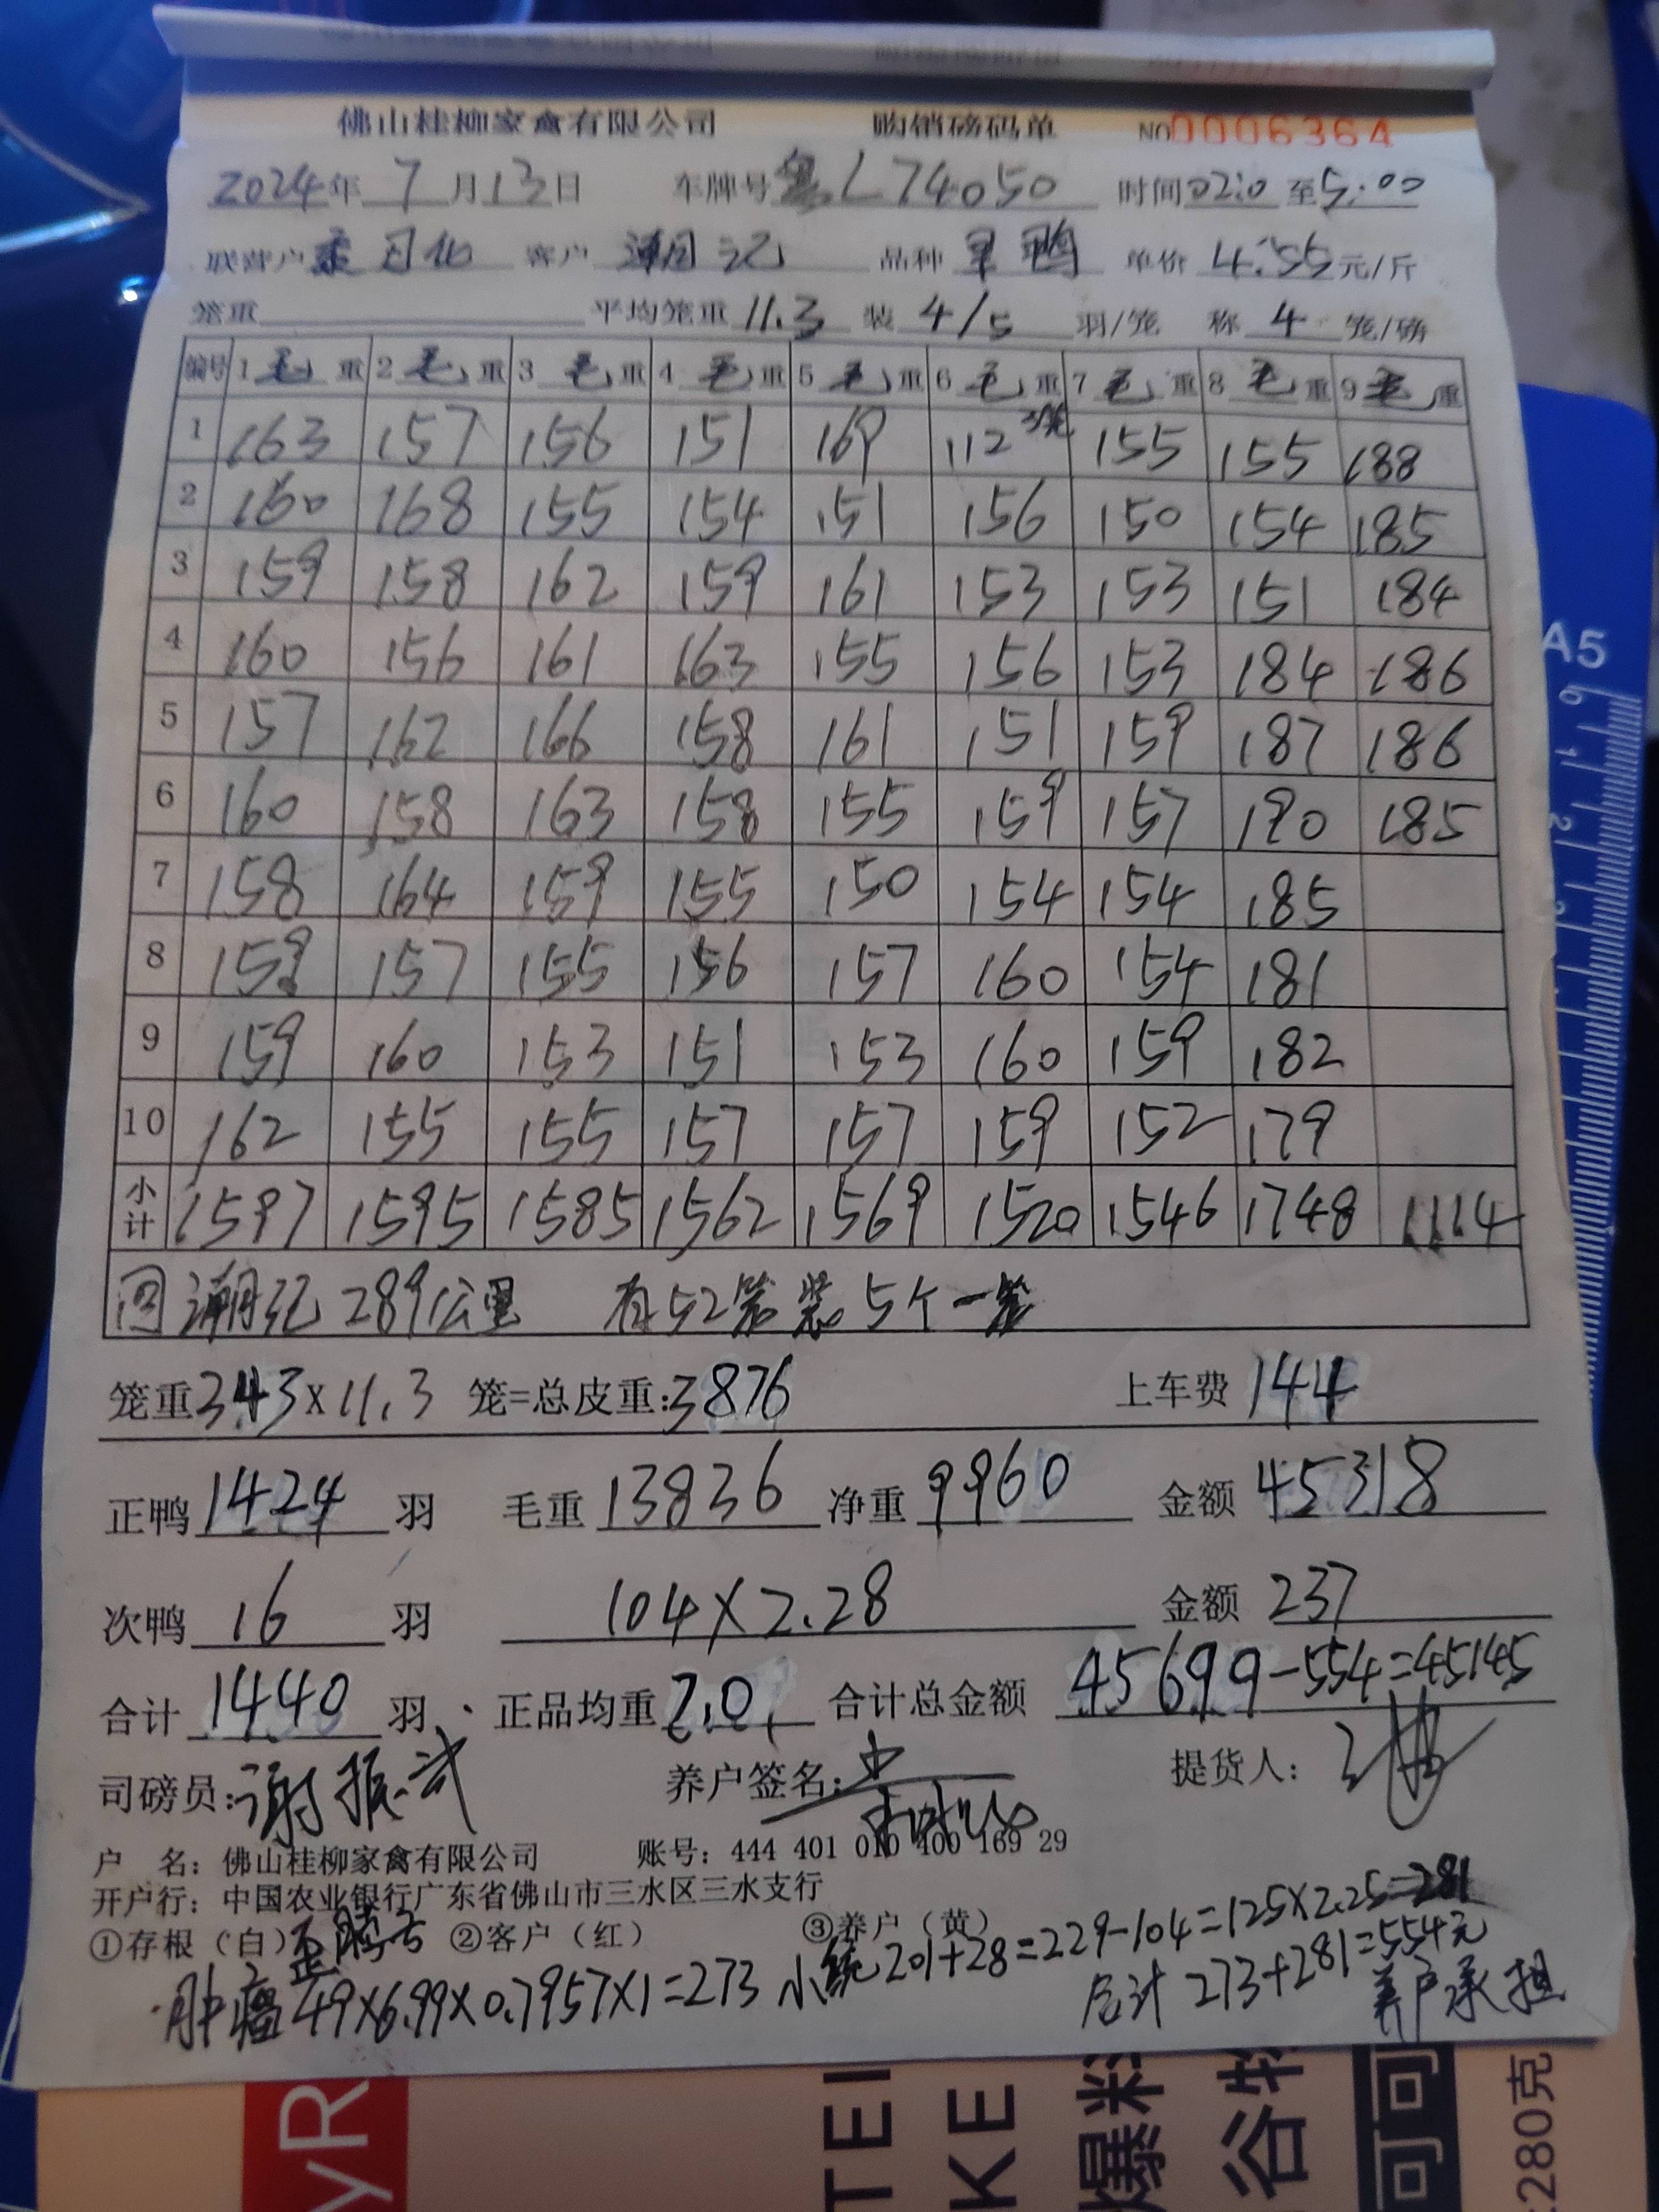 佛山桂柳家禽有限公司 购销磅码单 NO0006364
2024年7月13日 车牌号粤L74050 时间02:0至5:00
联营户 客户 潮记 品种 旱鸭 单价 4.55元/斤
笼重 平均笼重 11.3 装 4/5 羽/笼 称 4 笼/磅
编号 1毛重 2毛重 3毛重 4毛重 5毛重 6毛重 7毛重 8毛重 9毛重
1 163 157 156 151 169 112 3笼 155 155 188
2 160 168 155 154 151 156 150 154 185
3 159 158 162 159 161 153 153 151 184
4 160 156 161 163 155 156 153 184 186
5 157 162 166 158 161 151 159 187 186
6 160 158 163 158 155 159 157 190 185
7 158 164 159 155 150 154 154 185
8 159 157 155 156 157 160 154 181
9 159 160 153 151 153 160 159 182
10 162 155 155 157 157 159 152 179
小计 1597 1595 1585 1562 1569 1520 1546 1748 1114
回潮记289公里 有52笼装5个一笼
笼重343×11.3 笼=总皮重:3876 上车费144
正鸭1424羽 毛重13836 净重9960 金额45318
次鸭16羽 104×2.28 金额237
合计1440羽 正品均重7.0 合计总金额 45699-554=45145
司磅员:谢振武 养户签名: 提货人:
户 名:佛山桂柳家禽有限公司 账号:444 401 010 400 169 29
开户行:中国农业银行广东省佛山市三水区三水支行
①存根(白) ②客户(红) ③养户(黄)
歪膀子 小统201+28=229-104=125×2.25=281
肿瘤49×6.99×0.7957×1=273 合计273+281=554元
养户承担
A5
0 1 2
YR
TEI
KE
爆料
谷物
可可
280克